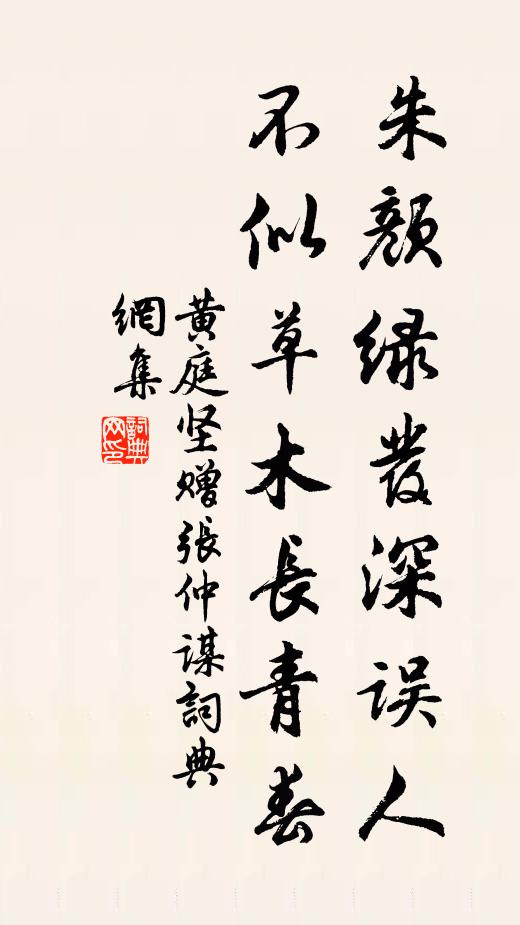 朱颜绿发深误人
不似草木長青春
黄庭坚赠張仲謀詞典
網集
詞典
网印